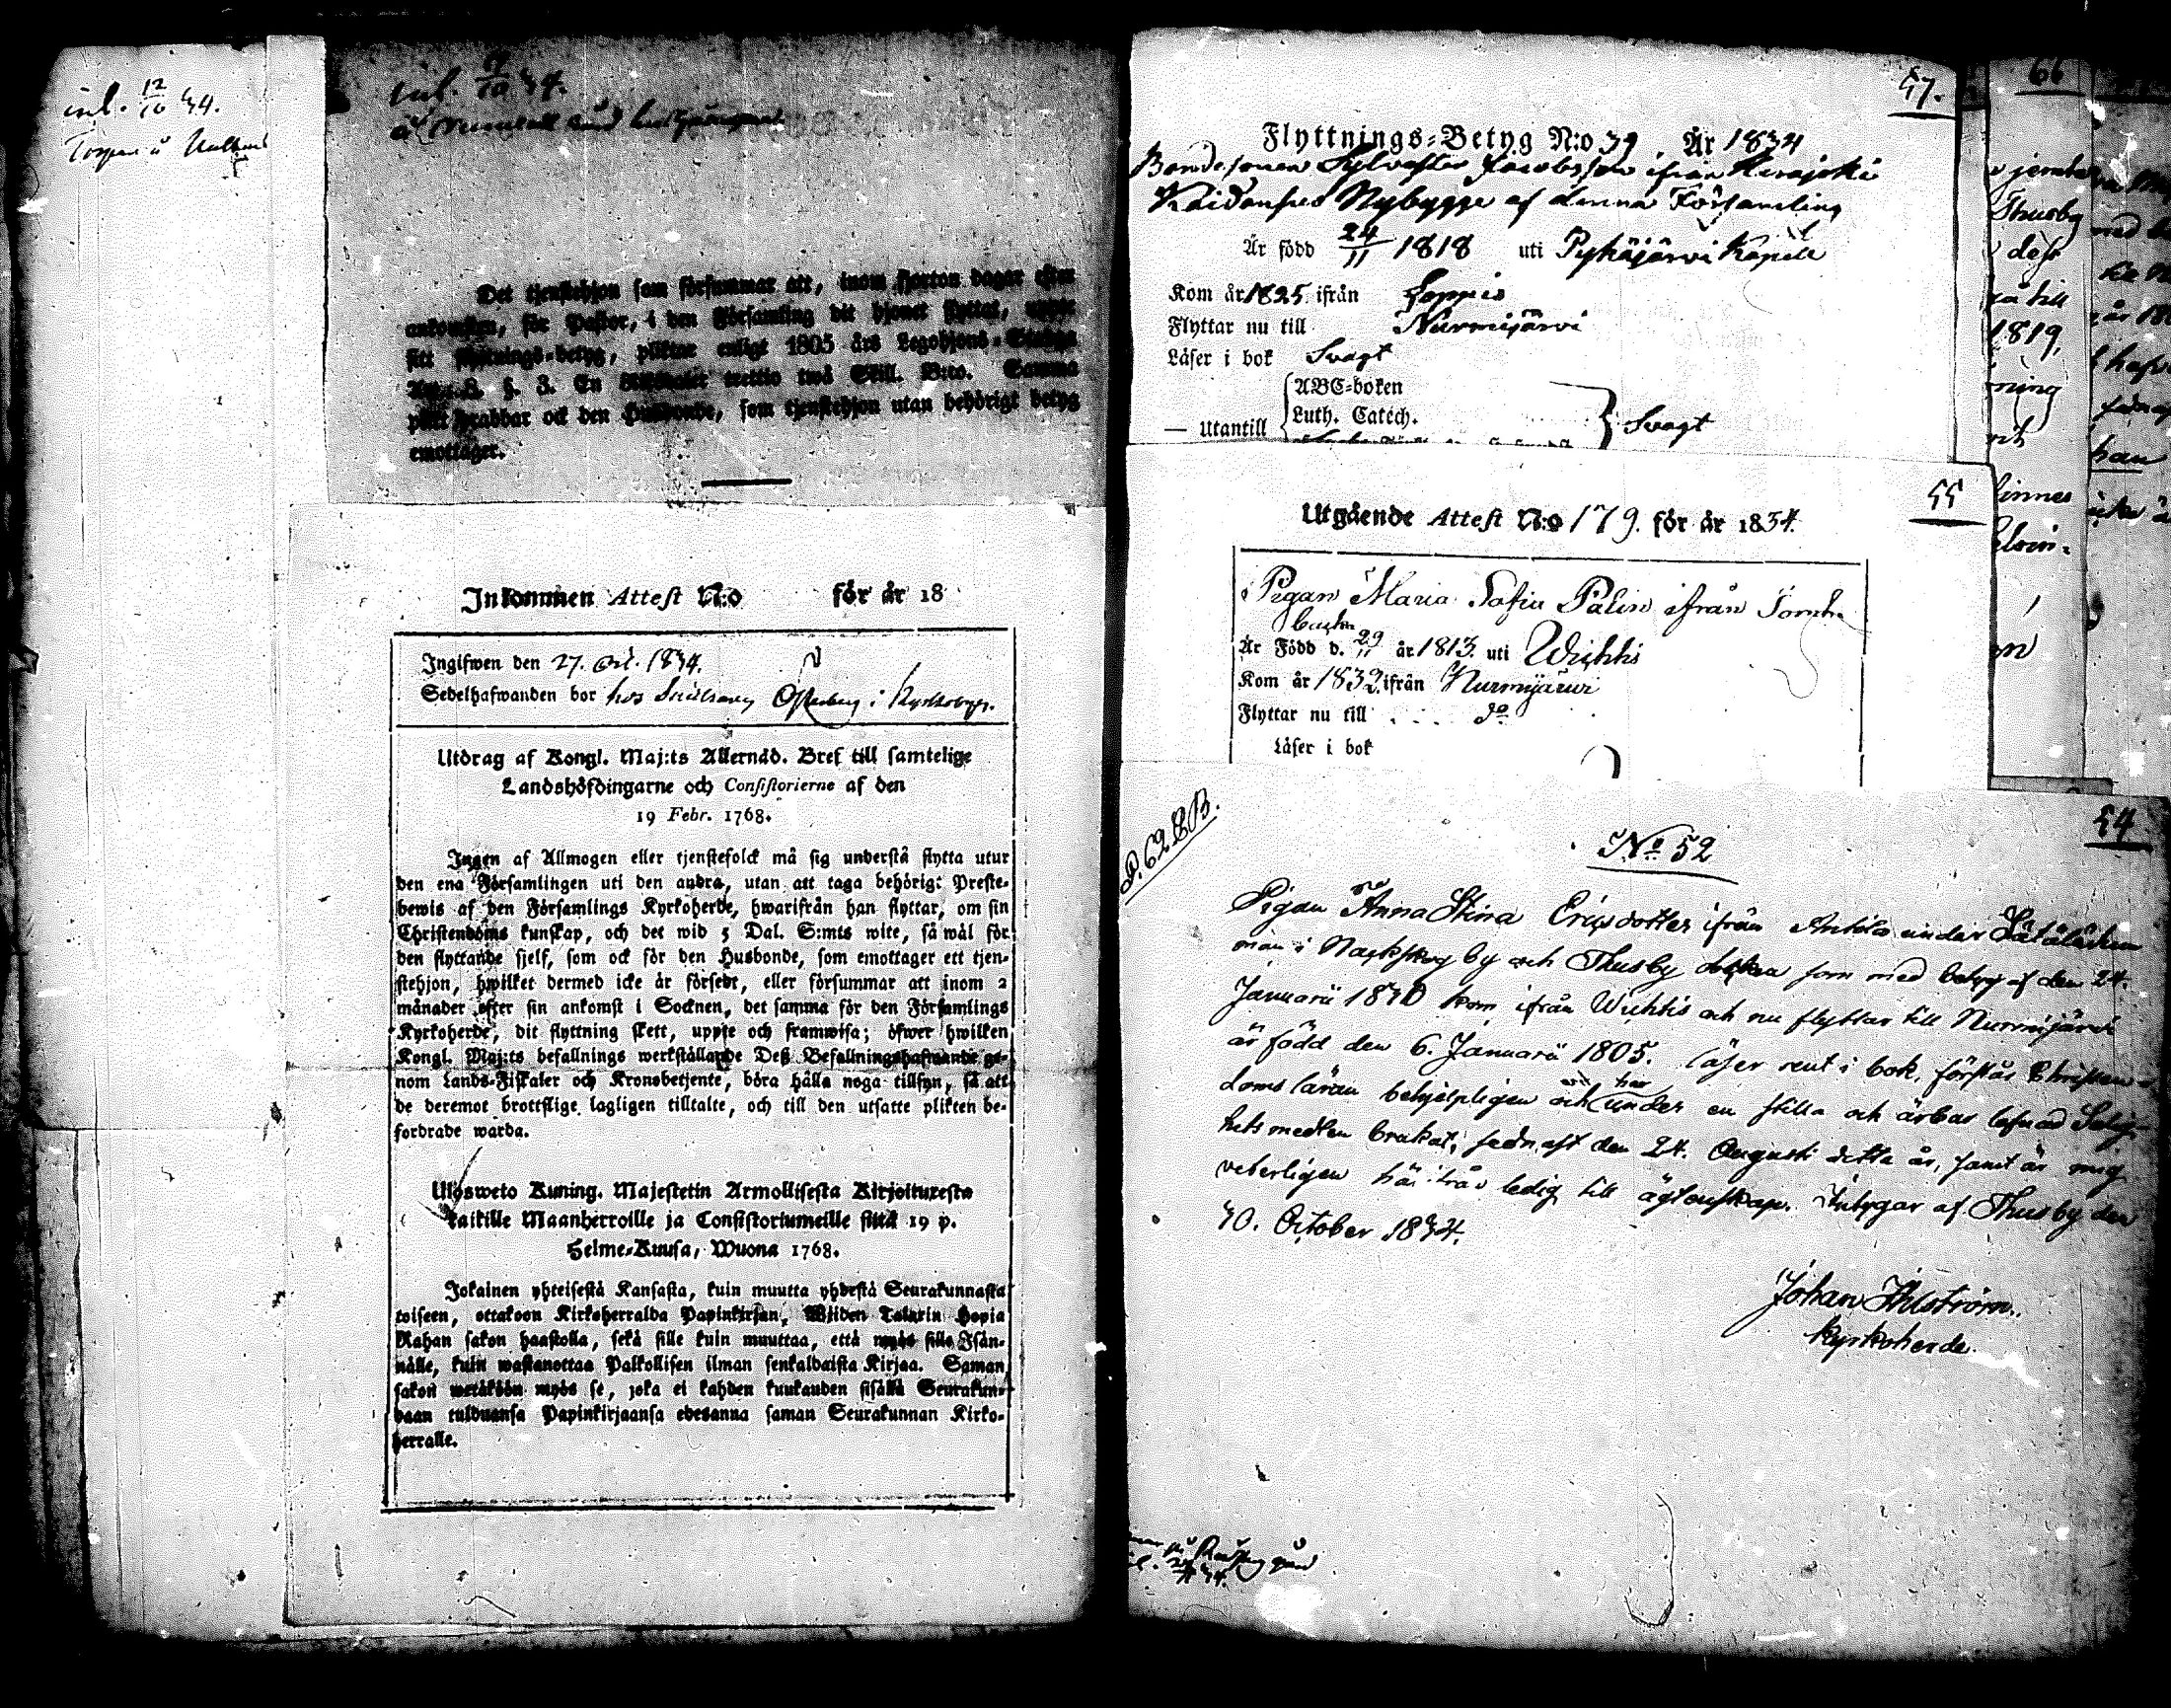 inl. 12/10 34.
Torpare å
inl. 10 34.
Det tjenstehjon som försummar att, inom fjorton dagar efter
ankomsten, för Pastor, i den Församling dit hjonet flyttat, uppte
sitt flyttnings-betyg, pliktar enligt 1805 års Legohjons-Stadga
Art. 8. §. 3. En Riksdaler trettio två Skill. B:co. Samma
plikt drabbar ock den Husbonde, som tjenstehjon utan behörigt betyg
emottager.
Inkommen Attest N:o för år 18
Ingifwen den 27. Oct. 1834.
Sedelhafwanden bor hos Österberg i Kyrkobyn.
Utdrag af Kongl. Maj:ts Allernåd. Bref till samtelige
Landshöfdingarne och Consistorierne af den
19 Febr. 1768.
Ingen af Allmogen eller tjenstefolck må sig understå flytta utur
den ena Församlingen uti den andra, utan att taga behörigt Preste-
bewis af den Församlings Kyrkoherde, hwarifrån han flyttar, om sin
Christendoms kunskap, och det wid 5 Dal. S:mts wite, så wäl för
den flyttande sjelf, som ock för den Husbonde, som emottager ett tjen-
stehjon, hwilket dermed icke är försedt, eller försummar att inom 2
månader efter sin ankomst i Socknen, det samma för den Församlings
Kyrkoherde, dit flyttning skett, uppte och framwisa; öfwer hwilken
Kongl. Maj:ts befallnings werkställande Deß Befallningshafwande ge-
nom Lands-Fiskaler och Kronobetjente, böra hålla noga tillsyn, så att
de deremot brottslige lagligen tilltalte, och till den utsatte plikten be-
fordrade warda.
Ulosweto Kuning. Majestetin Armollisesta Kirjoituresta
kaikille Maanherroille ja Consistoriumeille siitä 19 p.
Helme-Kuusa, Wuona 1768.
Jokainen yhteisestä Kansasta, kuin muutta yhdestä Seurakunnasta
toiseen, ottakoon Kirkoherralda Papinkirjan, Wiiden Talarin Hopia
Rahan sakon haastolla, sekä sille kuin muuttaa, että myös sille Isän-
nälle, kuin wastanottaa Palkollisen ilman senkaldaista Kirjaa. Saman
sakon wetäköön myös se, joka ei kahden kuukauden sisällä Seurakun-
daan tulduansa Papinkirjaansa edesanna saman Seurakunnan Kirko-
herralle.
57.
Flyttnings-Betyg N:o 39 År 1834
Bondesonen Sylvester Jacobsson ifrån Kerajoki
Nybygge af denna Församling
Är född 24/11 1818 uti Pyhäjärvi Kapell
Kom år 1825 ifrån Loppis
Flyttar nu till Nurmijärvi
Läser i bok Svagt
— Utantill
ABC-boken
Luth. Catech.
Svagt
55
Utgående Attest N:o 179. för år 1834.
Pigan Maria Sofia Palin ifrån
Är Född d. 29/11 år 1813. uti Wichtis
Kom år 1832 ifrån Nurmijärvi
Flyttar nu till . . . . do
Läser i bok
54
P. 62 C.B.
No 52
Pigan Anna Stina Ericsdotter ifrån Anttila under
man i Nackskog by och Thusby som med betyg af den 24.
Januarii 1830 kom ifrån Wichtis och nu flyttar till Nurmijärvi
är född den 6. Januarii 1805. läser rent i bok, förstår Christen-
doms läran behjelpligen och har under en stilla och ärbar lefnad Salig-
hets medlen brukat, sednast den 24. Augusti detta år, samt är mig
veterligen härifrån ledig till ägtenskap. Intygar af Thusby den
30. October 1834.
Johan Ihlström.
Kyrkoherde.
66
Thusby
dess
till
1819,
ning
han